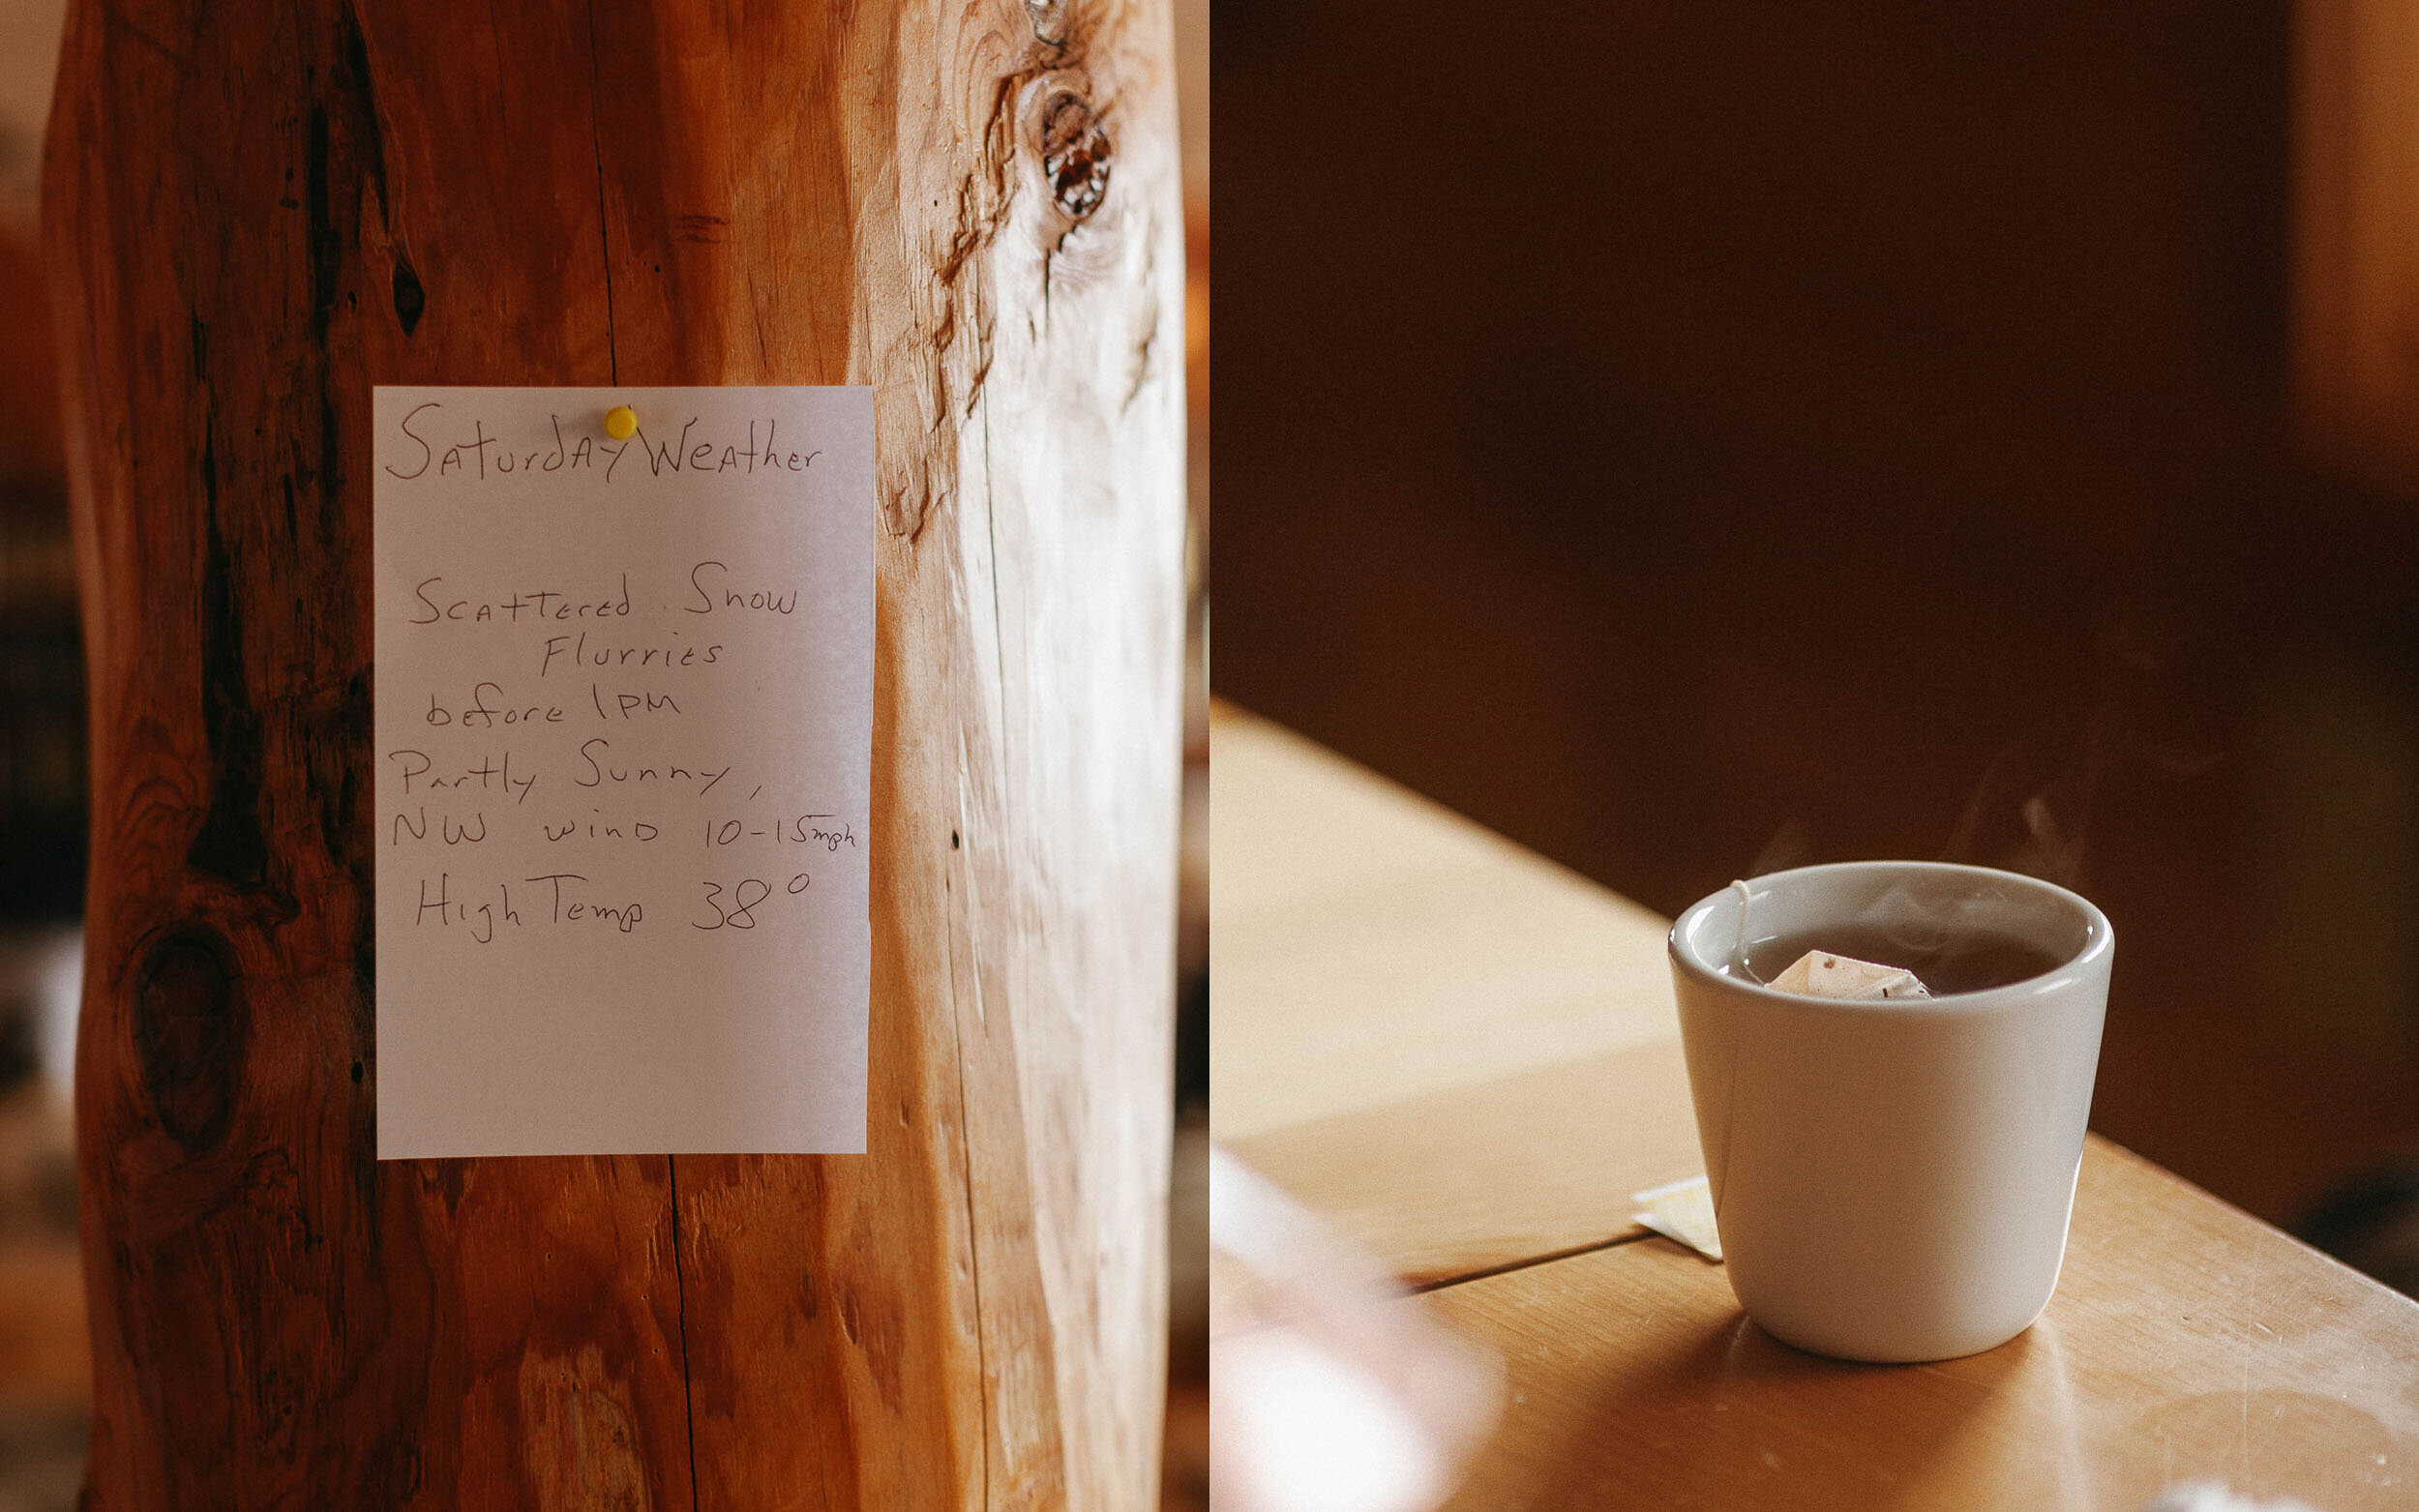 Saturday Weather
Scattered Snow
Flurries
before 1PM
Partly Sunny,
NW wind 10-15mph
High Temp 38°